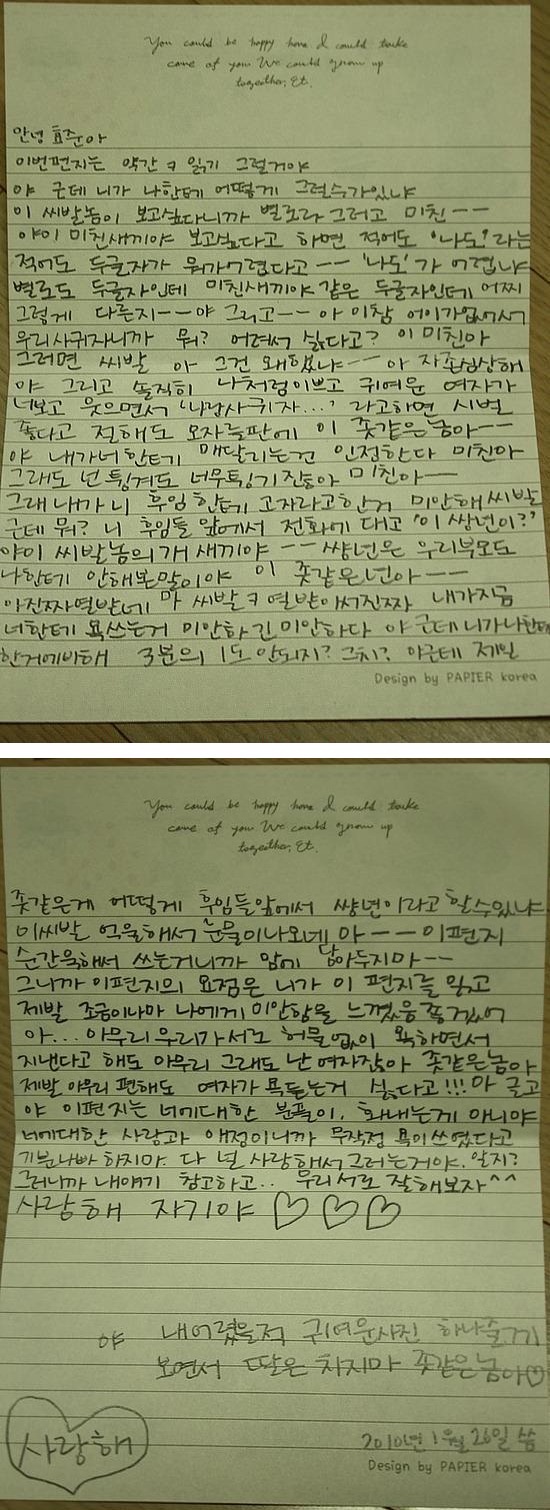 You could be happy here I could take
care of you We could grow up
together, Et.
안녕 효준아
이번편지는 약간 ㅋ 읽기 그럴거야
야 근데 니가 나한테 어떻게 그럴수가있냐
이 씨발놈이 보고싶다니까 별로라 그러고 미친ㅡㅡ
야이 미친새끼야 보고싶다고 하면 적어도 '나도'라는
적어도 두글자가 뭐가어렵다고 ㅡㅡ '나도'가 어렵냐
별로도 두글자인데 미친새끼야 같은 두글자인데 어찌
그렇게 다른지ㅡㅡ야 그리고ㅡㅡ 아 미참 어이가없어서
우리사귀자니까 뭐? 어려서 싫다고? 이 미친아
그러면 씨발 아 그건 왜했냐ㅡㅡ 아 자존심상해
야 그리고 솔직히 나처럼이쁘고 귀여운 여자가
너보고 웃으면서 '나랑사귀자...' 라고하면 시벌
좋다고 절해도 모자를판에 이 좆같은놈아ㅡㅡ
야 내가너한테 매달리는건 인정한다 미친아
그래도 넌 튕겨도 너무튕기잖아 미친아ㅡㅡ
그래 내가 니 후임한테 고자라고한거 미안해 씨발
근데 뭐? 니 후임들 앞에서 전화에 대고 '이 썅년이?'
야이 씨발놈의개새끼야 ㅡㅡ 썅년은 우리부모도
나한테 안해본말이야 이 좆같은년아ㅡㅡ
아진짜열받네 마 씨발ㅋ 열받아서진짜 내가지금
너한테 욕쓰는거 미안하긴미안하다 야 근데니가나한테
한거에비해 3분의 1도 안되지? 그치? 야근데 제일
Design by PAPIER korea
You could be happy here I could take
care of you We could grow up
together, Et.
좆같은게 어떻게 후임들앞에서 썅년이라고 할수있냐
이씨발 억울해서 눈물이나오네 아ㅡㅡ 이편지
순간욱해서 쓰는거니까 맘에 담아두지마ㅡㅡ
그니까 이편지의 요점은 니가 이 편지를 읽고
제발 조금이나마 나에게 미안함을 느꼈음좋겠어
아... 아무리우리가서로 허물없이 욕하면서
지낸다고 해도 아무리 그래도 난 여자잖아 좆같은놈아
제발 아무리 편해도 여자가 욕듣는거 싫다고!!! 마 글고
야 이편지는 너에대한 분풀이, 화내는게 아니야
너에대한 사랑과 애정이니까 무작정 욕이쓰였다고
기분나빠 하지마. 다 널 사랑해서그러는거야. 알지?
그러니까 내얘기 참고하고.. 우리서로 잘해보자^^
사랑해 자기야 ♡♡♡
야 내어렸을적 귀여운사진 하나
보면서 딸은 치지마 좆같은놈아♡
사랑해
2010년 1월 26일 씀
Design by PAPIER korea